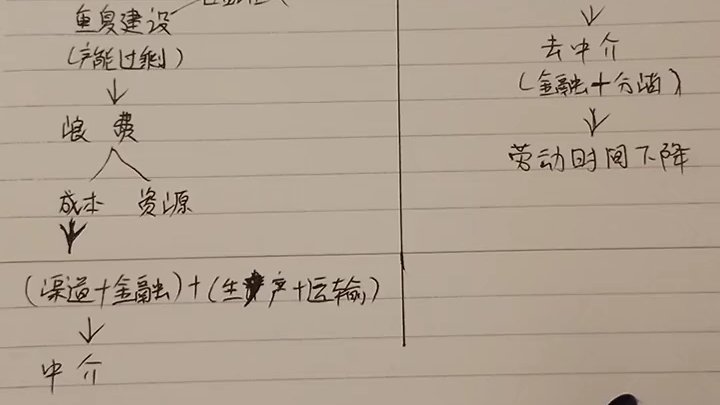 重复建设
(产能过剩)
浪费
成本 资源
(渠道+金融)+(生产+运输)
中介
去中介
(金融+分销)
劳动时间下降